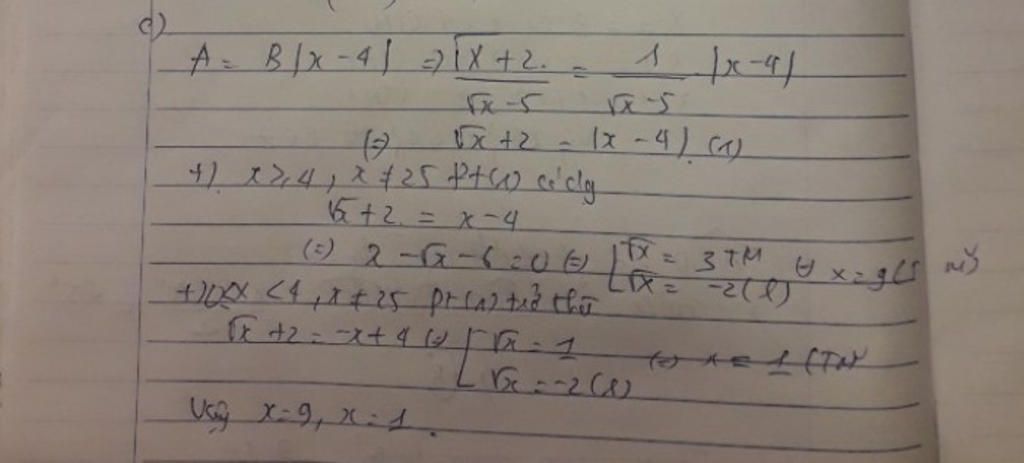 c)
A = B|x - 4| => √x + 2 / √x - 5 = 1 / √x - 5 |x - 4|
(=) √x + 2 = |x - 4| (1)
+) x ≥ 4, x ≠ 25 Pt (1) có dg
√x + 2 = x - 4
(=) x - √x - 6 = 0 (=) [ √x = 3 TM
√x = -2 (l) (=) x = 9 (T m)
+) 0 ≤ x < 4, x ≠ 25 pt (1) trở thà
√x + 2 = -x + 4 (=) [ √x = 1
√x = -2 (l) (=) x = 1 (TM)
Vậy x = 9, x = 1.